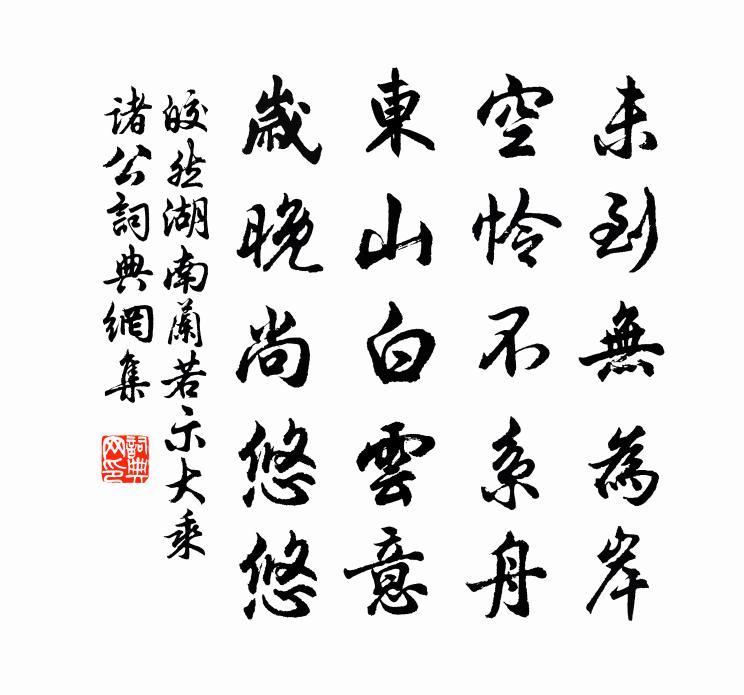 未到無為岸
空怜不系舟
東山白雲意
歲晚尚悠悠
皎然湖南蘭若示大乘
諸公詞典網集
詞典网印